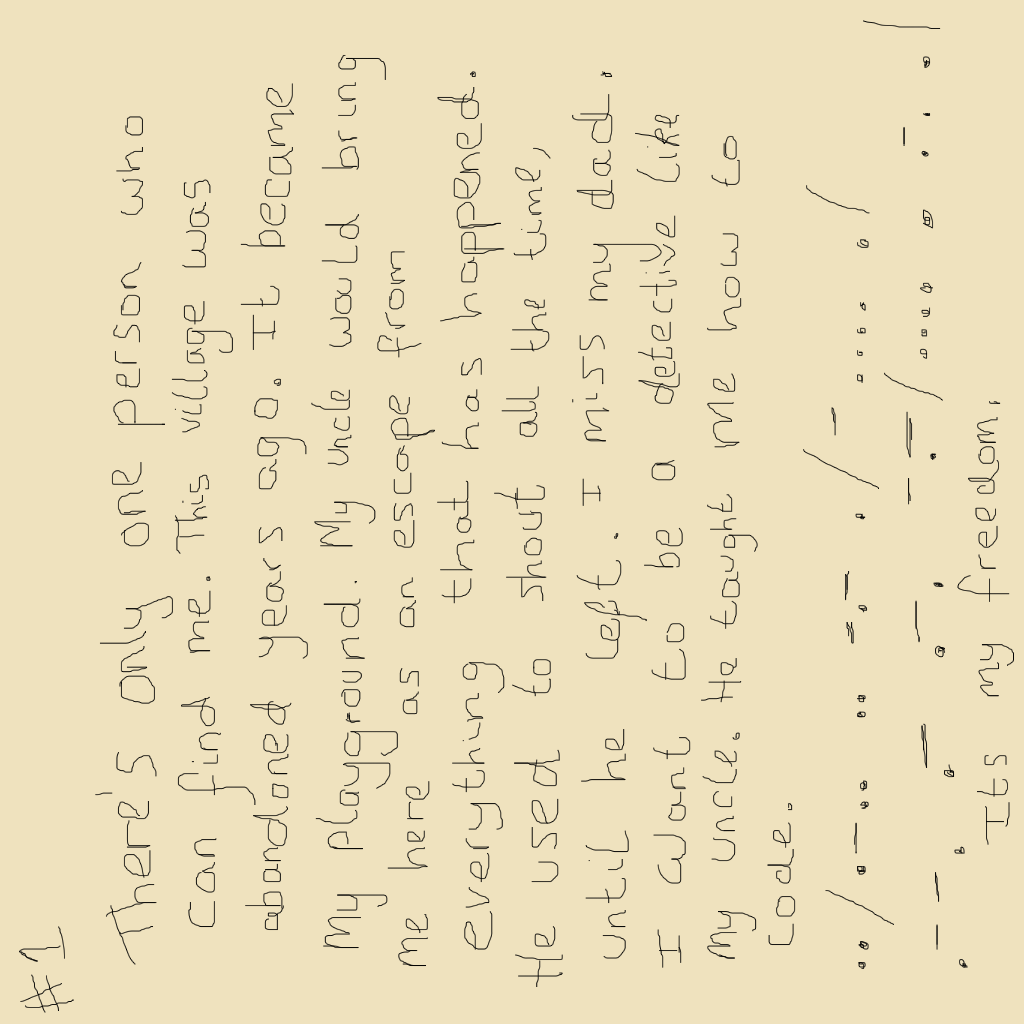 #1
There's only one person who
can find me. This village was
abandoned years ago. It became
My playground. My uncle would bring
me here as an escape from
everything that has happened.
He used to shout all the time,
until he left. I miss my dad.
I want to be a detective like
My uncle. He taught me how to
code.
.. / .-.. .. -.- . / - .... . /
.--. .- .-. -.- / .... . .-. . /
Its my freedom.